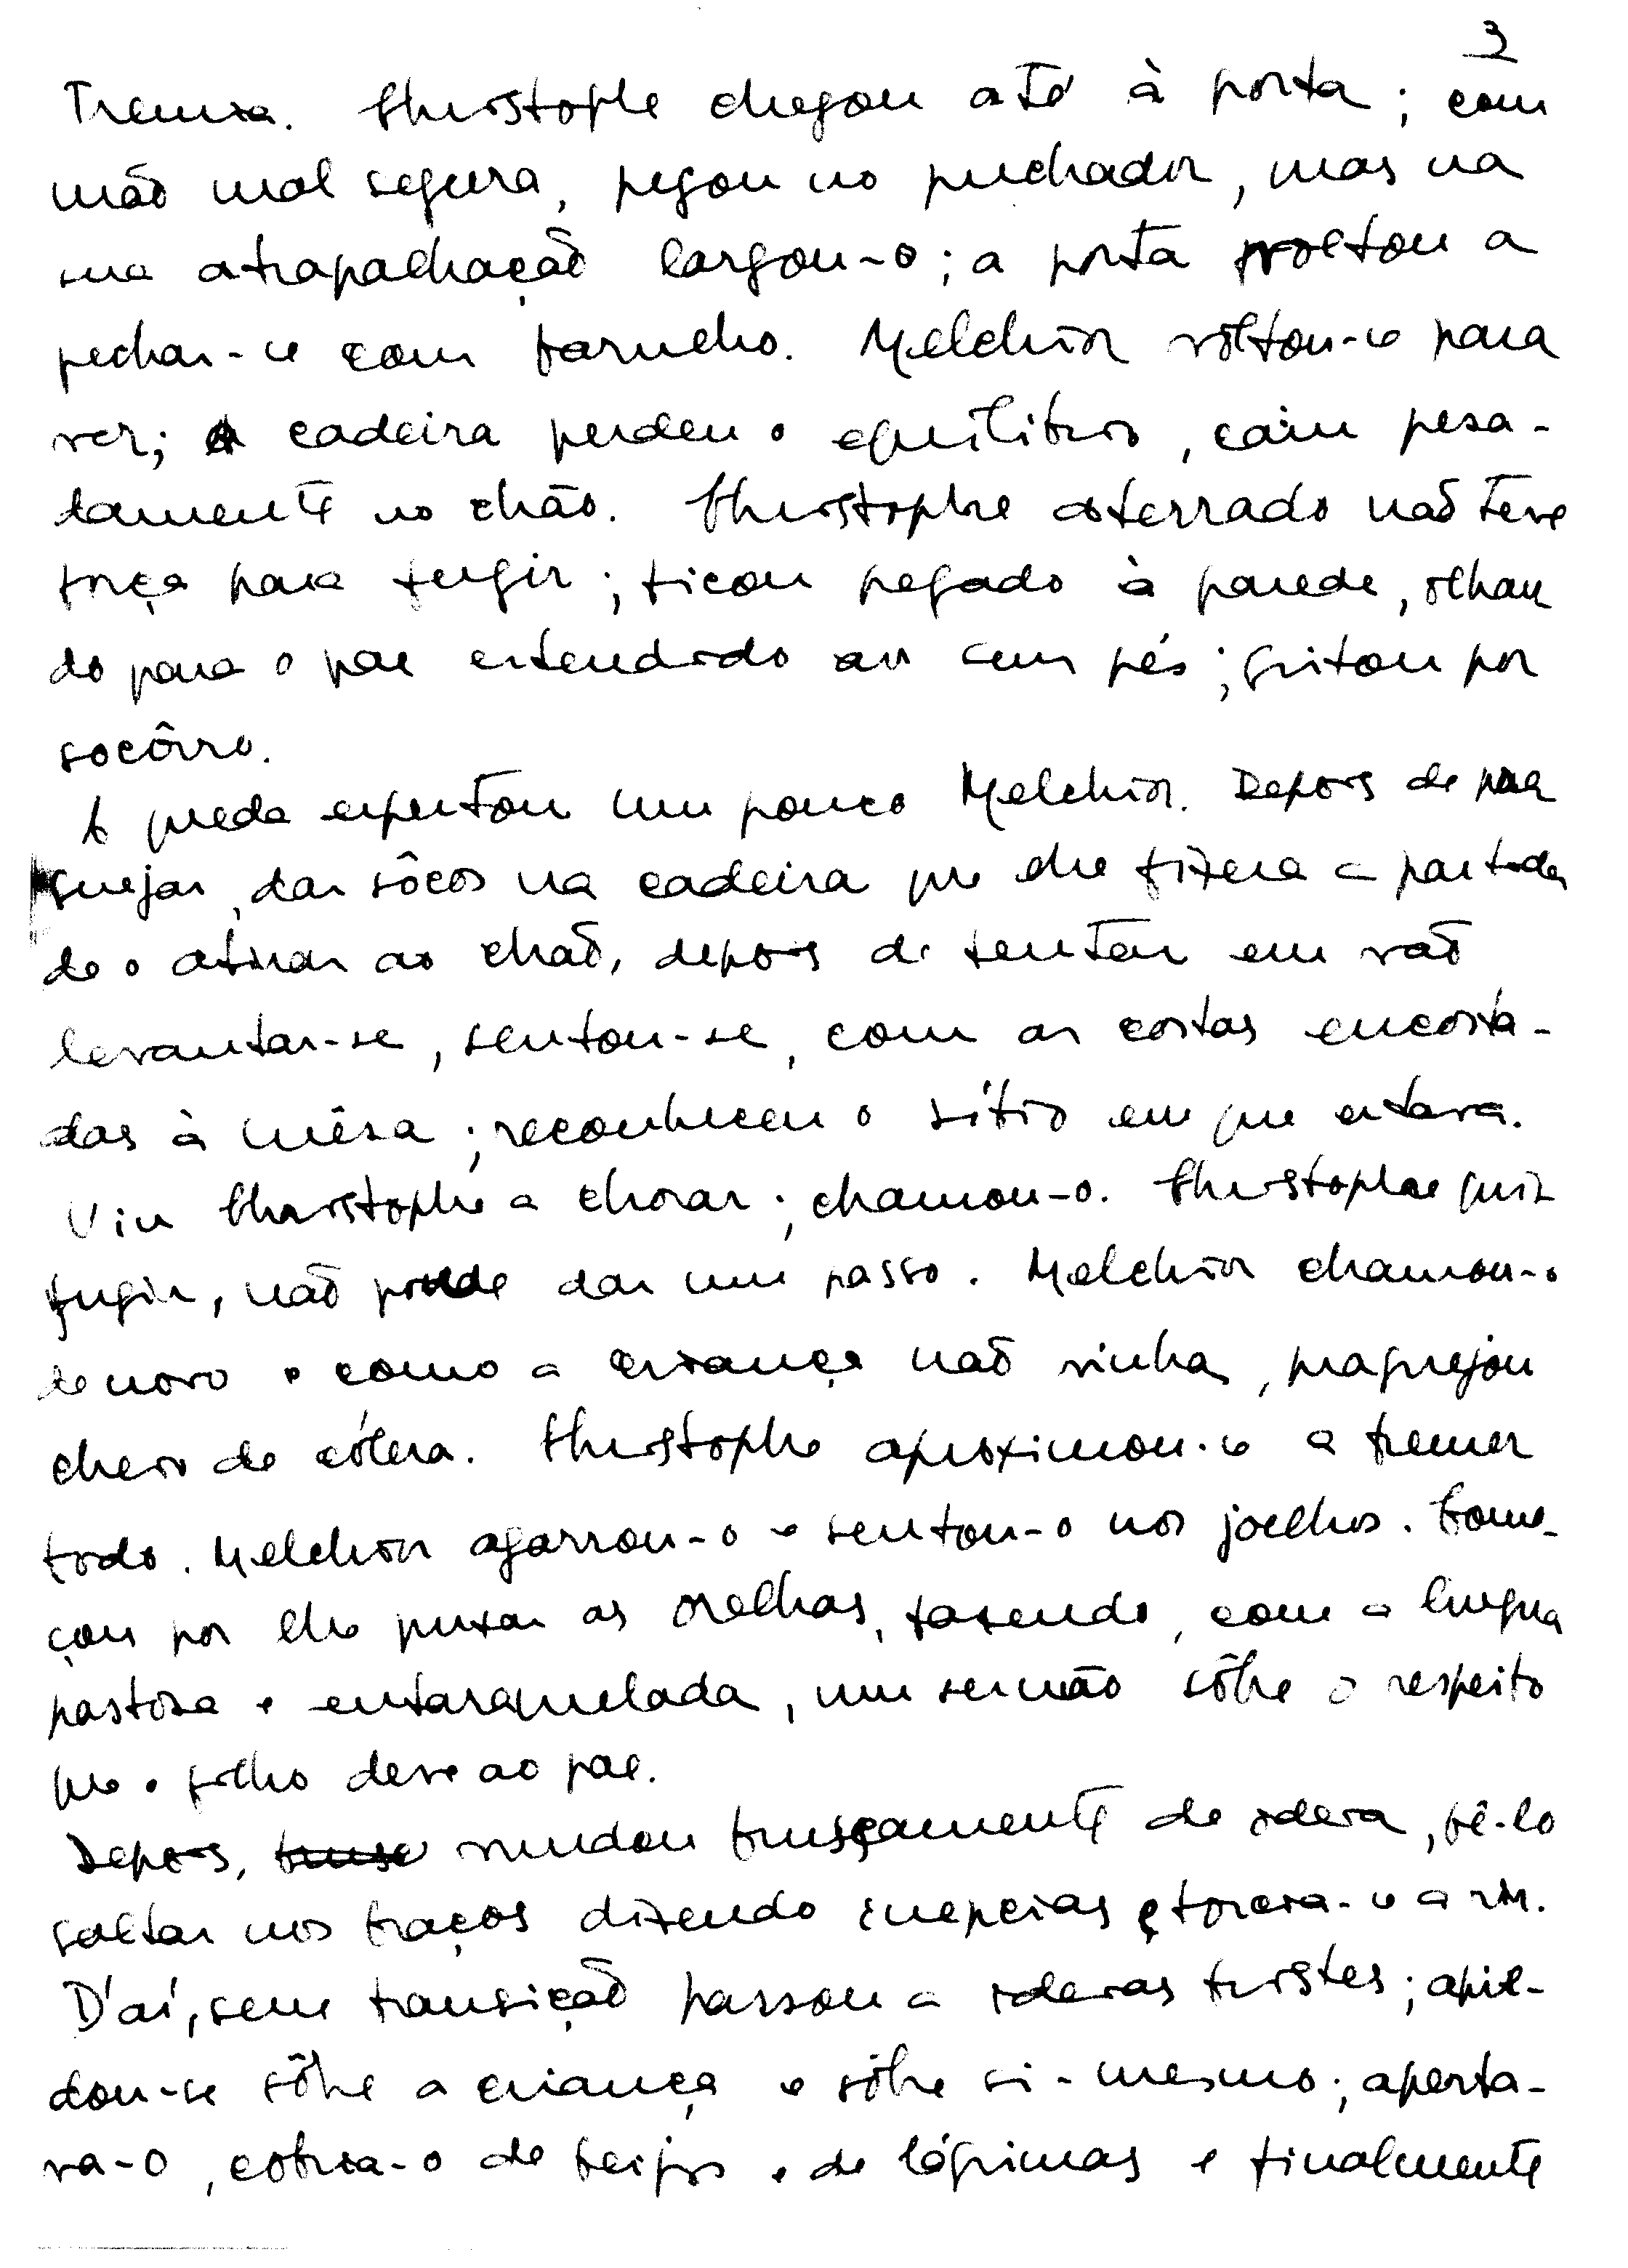 3
Tremia. Christophe chegou até à porta; com
mão mal segura, pegou no puchador, mas na
sua atrapalhação largou-o; a porta voltou a
fechar-se com barulho. Melchior voltou-se para
ver; a cadeira perdeu o equilíbrio, caiu pesa-
damente no chão. Christophe aterrado não teve
força para fugir; ficou pegado à parede, olhan
do para o pae estendido aos seus pés; gritou por
socôrro.
A queda espertou um pouco Melchior. Depois de pra
guejar, dar sôcos na cadeira que lhe fizera a partida
de o atirar ao chão, depois de tentar em vão
levantar-se, sentou-se, com as costas encosta-
das à mêsa; reconheceu o sítio em que estava.
Viu Christophe a chorar; chamou-o. Christophe quiz
fugir, não poude dar um passo. Melchior chamou-o
de novo e como a criança não vinha, praguejou
cheio de cólera. Christophe aproximou-se a tremer
todo. Melchior agarrou-o e sentou-o nos joelhos. Come-
çou por lhe puxar as orelhas, fazendo, com a lingua
pastosa e entaramelada, um sermão sôbre o respeito
que o filho deve ao pae.
Depois, mudou bruscamente de ideia, fê-lo
saltar nos braços dizendo inepcias e torcia-se a rir.
D'aí, sem transição passou a ideias tristes; apie-
dou-se sôbre a criança e sôbre si-mesmo; aperta-
va-o, cobria-o de beijos e de lágrimas e finalmente